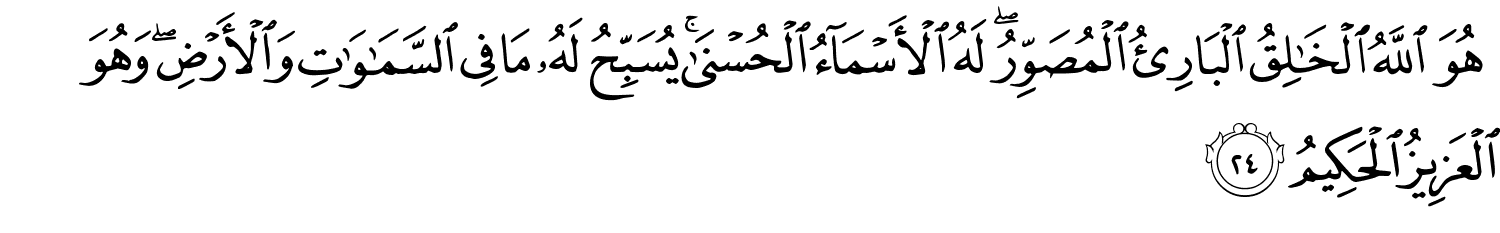 هُوَ ٱللَّهُ ٱلْخَـٰلِقُ ٱلْبَارِئُ ٱلْمُصَوِّرُ ۖ لَهُ ٱلْأَسْمَآءُ ٱلْحُسْنَىٰ ۚ يُسَبِّحُ لَهُۥ مَا فِى ٱلسَّمَـٰوَٰتِ وَٱلْأَرْضِ ۖ وَهُوَ
ٱلْعَزِيزُ ٱلْحَكِيمُ ٢٤